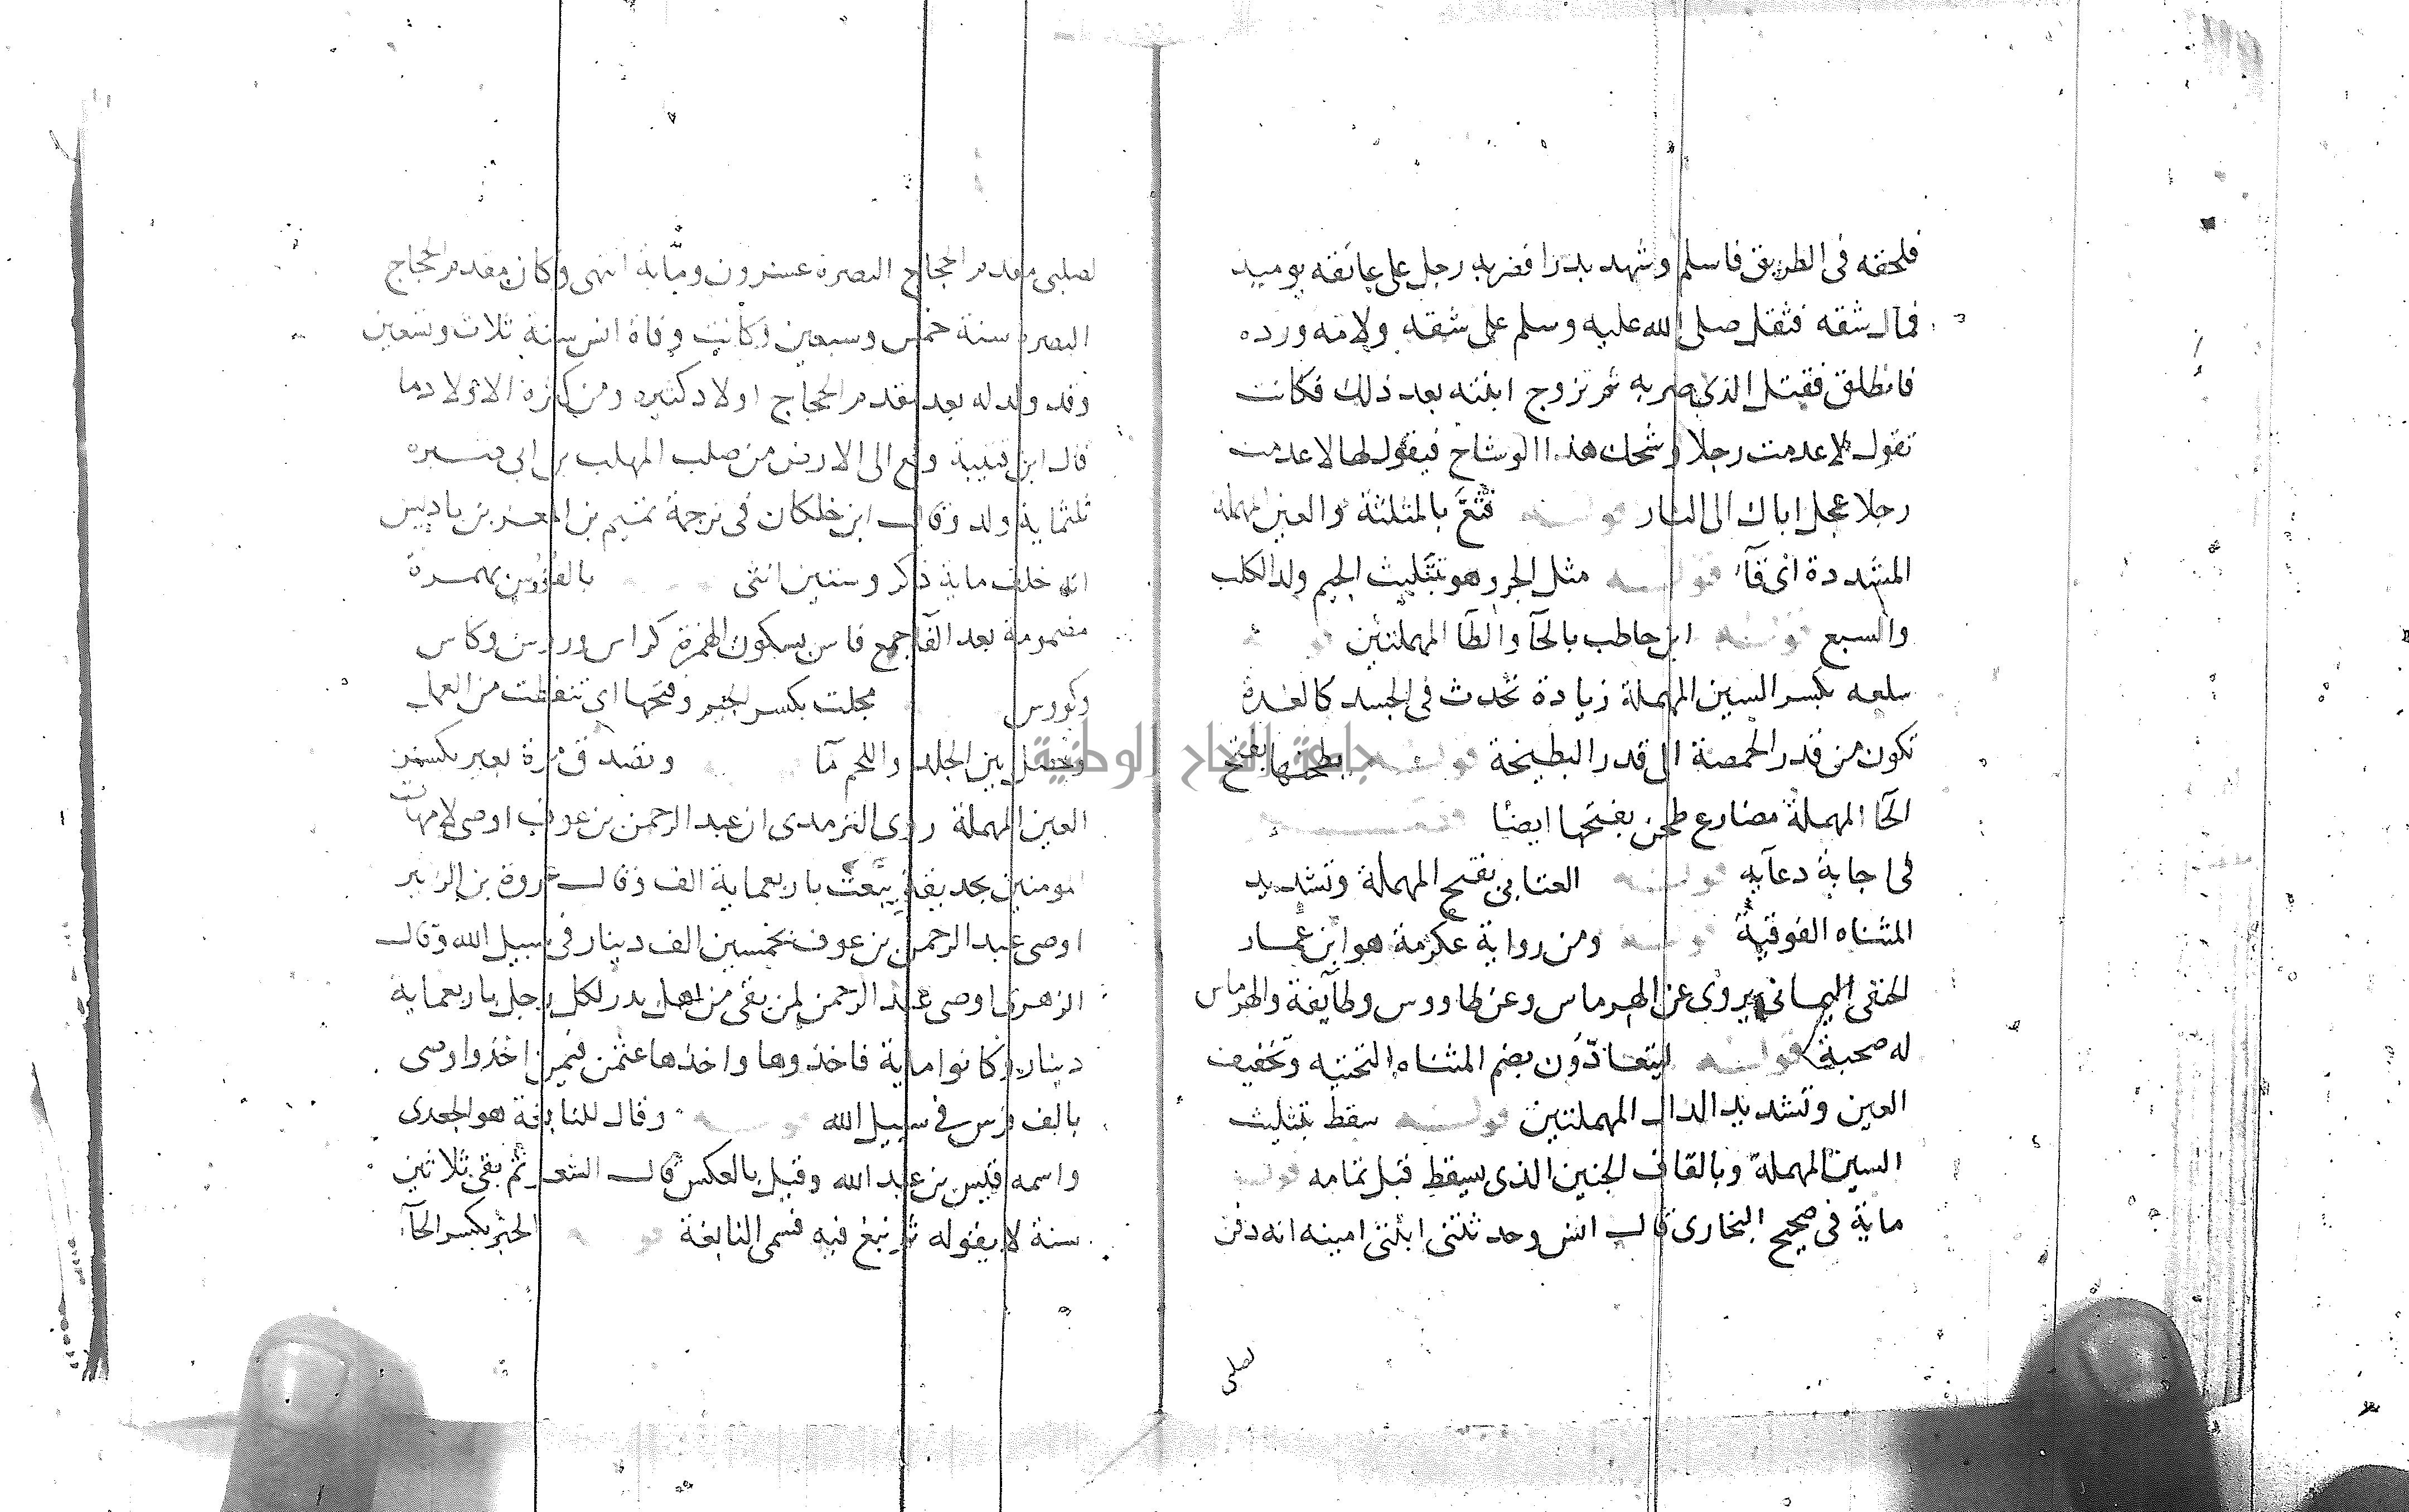 فلحقه فى الطريق فاسلم وشهد بدرا فضربه رجل على عاتقه يوميذ
فمال شقه فتفل صلى الله عليه وسلم على شقه ولامه ورده
فانطلق فقتل الذى ضربه ثم تزوج ابنته بعد ذلك فكانت
تقول لا عدمت رجلا وشحك هذا الوشاح فيقول لها لا عدمت
رجلا عجل اباك الى النار قوله فثع بالمثلثة والعين المهملة
المشددة اى قآء قوله مثل الجرو هو بتثليث الجيم ولد الكلب
والسبع قوله ابن حاطب بالحآ والطآ المهملتين قوله
سلعه بكسر السين المهملة زيادة تحدث فى الجسد كالغدة
تكون من قدر الحمصة الى قدر البطيخة قوله يطحنها بفتح
الحآ المهملة مضارع طحن بفتحها ايضا
فى اجابة دعآيه قوله العتابى بفتح المهملة وتشديد
المثناه الفوقية قوله ومن رواية عكرمة هو ابن عمار
الحنفى اليمانى يروى عن الهرماس وعن طاووس وطآيفة والهرماس
له صحبة قوله ليتعادون بضم المثناه التحتيه وتخفيف
العين وتشديد الدال المهملتين قوله سقط بتثليث
السين المهملة وبالقاف الجنين الذى يسقط قبل تمامه قوله
ماية فى صحيح البخارى قال انس وحدثتنى ابنتى امينه انه دفن
لصلبى
لصلبى مقدم الحجاج البصرة عشرون وماية انتهى وكان مقدم الحجاج
البصره سنة خمس وسبعين وكانت وفاة انس سنة ثلاث وتسعين
وقد ولد له بعد مقدم الحجاج اولاد كثيره ومن كثرة الاولاد ما
قال ابن قتيبة وقع الى الارض من صلب المهلب بن ابى صفره
ثلثماية ولد وقال ابن خلكان فى ترجمة تميم بن المعز بن باديس
انه خلف ماية ذكر وستين انثى بالفؤوس بهمزة
مضمومة بعد الفآ جمع فاس بسكون الهمزة كراس ورووس وكاس
وكووس مجلت بكسر الجيم وفتحها اى تنفطت من العمل
وحصل بين الجلد واللحم مآ وتصدق مرة بعير بكسر
العين المهملة روى الترمذى ان عبد الرحمن بن عوف اوصى لامهات
المومنين بحديقة بيعت باربعماية الف وقال عروة بن الزبير
اوصى عبد الرحمن بن عوف بخمسين الف دينار فى سبيل الله وقال
الزهرى اوصى عبد الرحمن لمن بقى من اهل بدر لكل رجل باربعماية
دينار وكانوا ماية فاخذوها واخذها عثمن فيمن اخذ واوصى
بالف فرس فى سبيل الله قوله وقال للنابغة هو الجعدى
واسمه قيس بن عبد الله وقيل بالعكس قال الشعر ثم بقى ثلاثين
سنة لا يقوله ثم نبغ فيه فسمى النابغة قوله الحبر بكسر الحآ
جامعة النجاح الوطنية